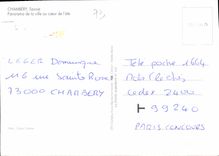 CHAMBERY, Savoie
Panorama de la ville au coeur de l'été
73
LEGER Dominique
116 rue Sainte Rose
73000 CHAMBERY
Télé poche 1664
Cedex 2400
99240
PARIS CONCOURS